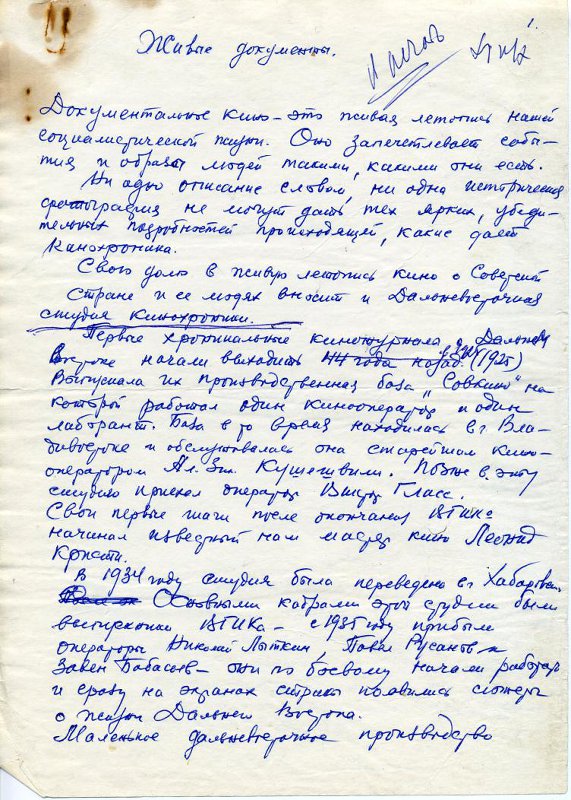 1.
Живые документы.
в печать
Документальное кино – это живая летопись нашей
социалистической жизни. Оно запечетлевает собы-
тия и образы людей такими, какими они есть.
Ни одно описание словом, ни одна историческая
фотография не могут дать тех ярких, убеди-
тельных подробностей происходящей, какие дает
Кинохроника.
Свою долю в живую летопись кино о Советской
стране и ее людях вносит и Дальневосточная
студия кинохроники.
Первые хроникальные киножурнала о Дальнем
Востоке начали выходить 44 года назад. (1925)
Выпускала их производственная база „Совкино“ на
которой работал один кинооператор и один
лаборант. База в то время находилась в г Вла-
дивостоке и обслуживалась она старейшим кино-
оператором Ал. Кушешвили. Позже в эту
студию приехал оператор Виктор Гласс.
Свои первые шаги после окончания ВГИКа
начинал известный нам мастер кино Леонид
Кристи.
В 1934 году студия была переведена в г Хабаровск.
Основными кадрами этой студии были
выпускники ВГИКа – с 1935 году прибыли
операторы Николай Лыткин, Павел Русанов и
Завен Бабасьев – они по боевому начали работать
и сразу на экранах страны появились сюжеты
о жизни Дальнего Востока.
Маленькое дальневосточное производство